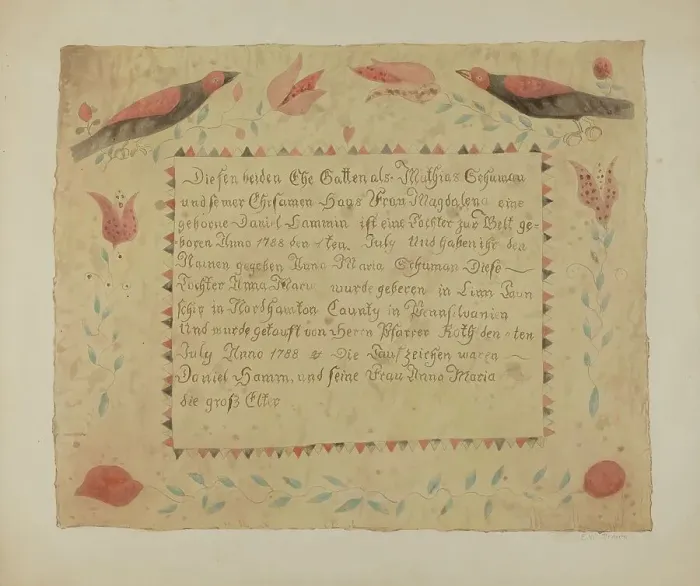 Diesen beiden Ehe Gatten als Mathias Schuman
und seiner Ehrsamen Haus Frau Magdalena eine
geborne Daniel Lammin ist eine Tochter zur Welt ge=
boren Anno 1788 den ten July Und haben ihr den
Namen gegeben Anna Maria Schuman Diese
Tochter Anna Maria wurde geboren in Linn Taun
schip in Nordhamton County in Pennsilvanien
Und wurde getauft von Herrn Pfarrer Roth den ten
July Anno 1788 Die Taufzeichen waren
Daniel Hamm, und seine Frau Anna Maria
die groß Elter